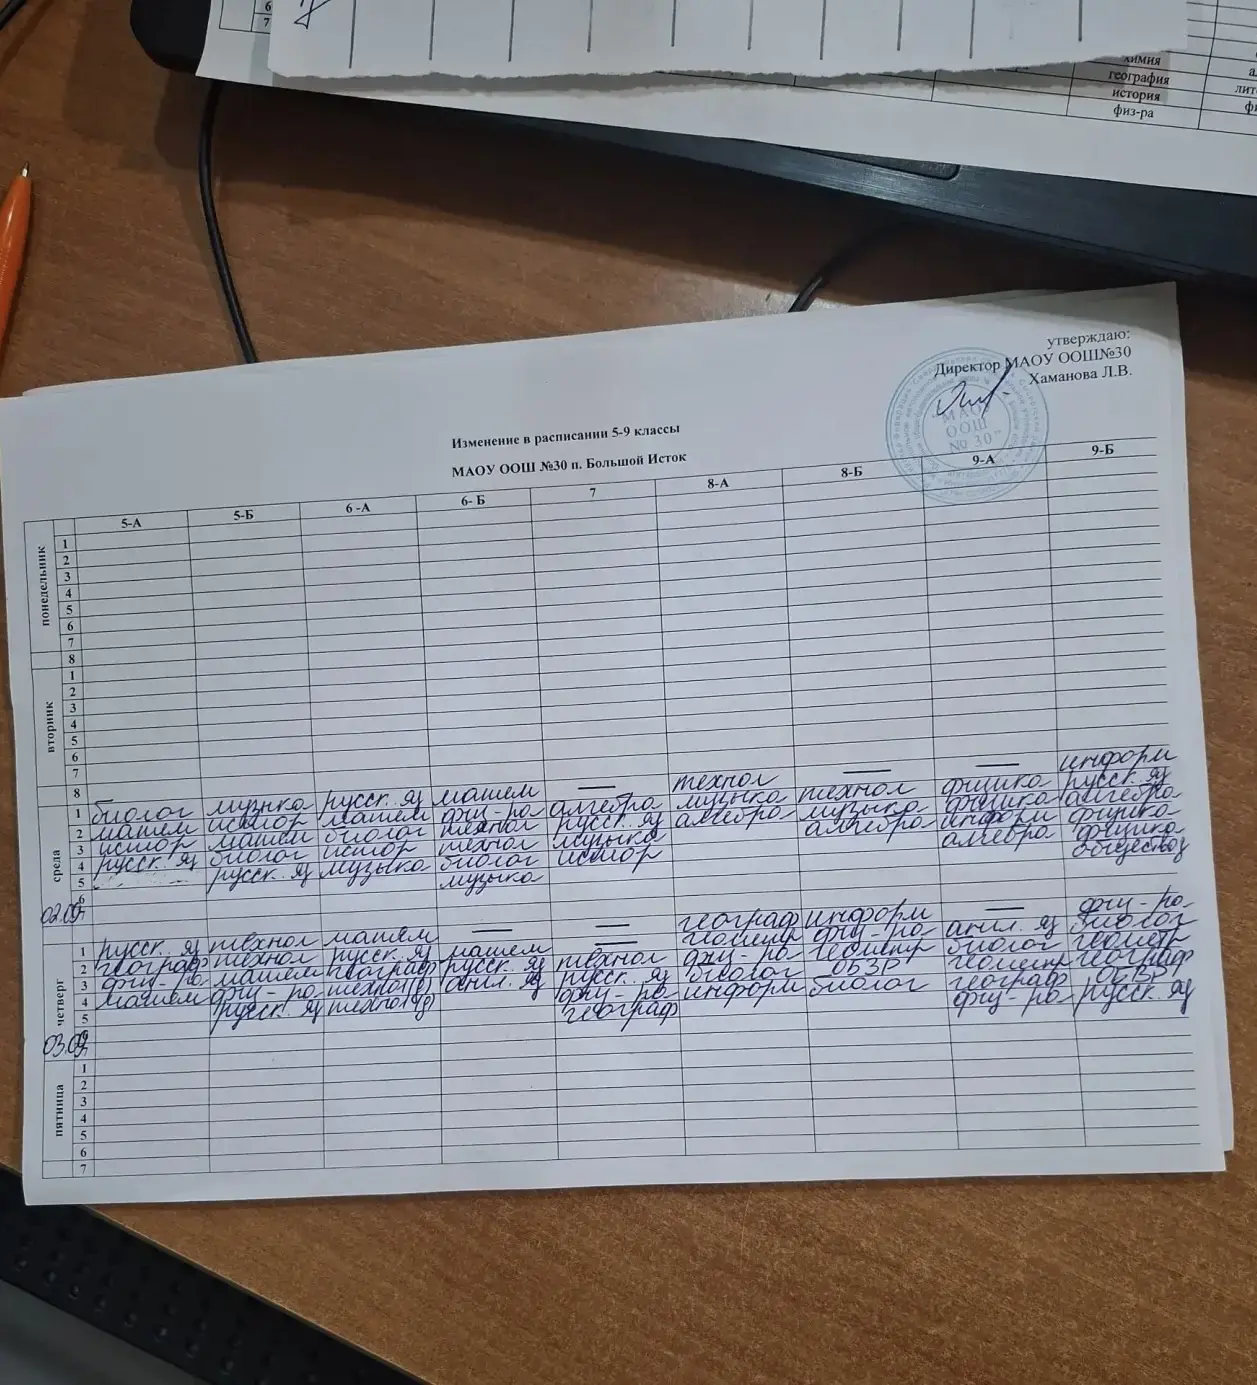 6
7
химия
география
история
физ-ра
утверждаю:
Директор МАОУ ООШ№30
Хаманова Л.В.
МАОУ
ООШ
№ 30"
Изменение в расписании 5-9 классы
МАОУ ООШ №30 п. Большой Исток
5-А 5-Б 6 -А 6- Б 7 8-А 8-Б 9-А 9-Б
понедельник
1
2
3
4
5
6
7
8
вторник
1
2
3
4
5
6
7
8
среда 02.09
1 биолог музыка русск. яз матем — технол — — информ
2 матем истор матем физ-ра алгебра музыка технол физика русск. яз
3 истор матем биолог технол русск. яз алгебра музыка физика алгебра
4 русск. яз биолог истор технол музыка алгебра информ физика
5 русск. яз музыка биолог истор алгебра физика
6 музыка обществоз
четверг 03.09
1 русск. яз технол матем — — географ информ — физ-ра
2 географ технол русск. яз матем — геометр физ-ра англ. яз биолог
3 физ-ра матем географ русск. яз технол физ-ра геометр биолог геометр
4 матем физ-ра технол(д) англ. яз русск. яз биолог ОБЗР геометр географ
5 русск. яз технол(д) физ-ра информ биолог географ ОБЗР
географ физ-ра русск. яз
пятница
1
2
3
4
5
6
7